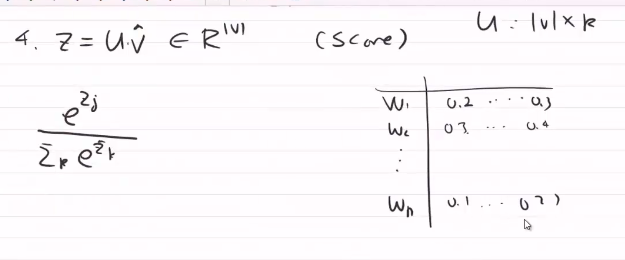 4. Z = U.v̂ ∈ R^|V| (Score) U : |v| x k
e^zj
Σk e^zk
W1 0.2 ....
W2 03. ... 0.4
⋮
Wn 0.1 ...